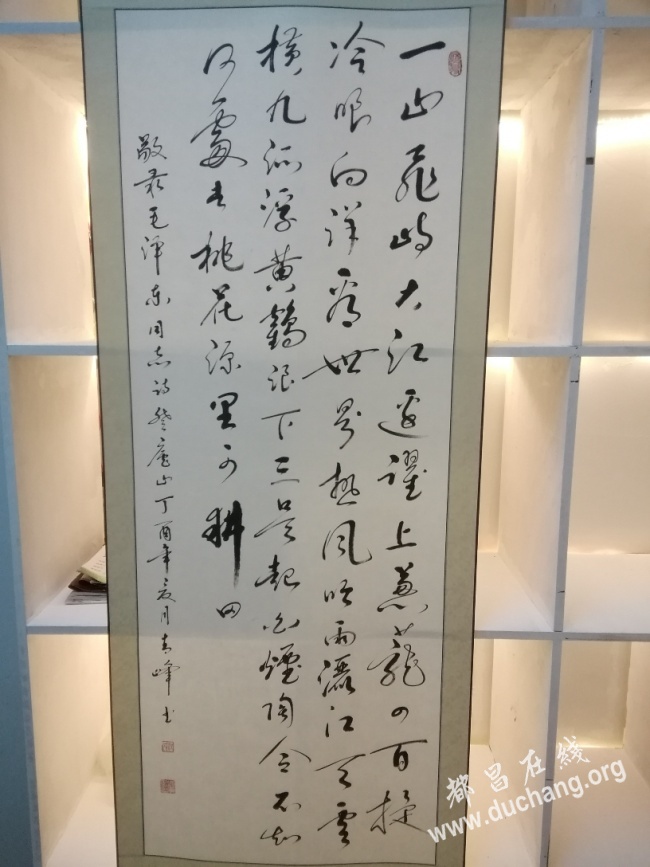 一山飛峙大江邊躍上蔥蘢四百旋
冷眼向洋看世界热風吹雨灑江天雲
横九派浮黄鶴浪下三吴起白煙陶令不知
何處去桃花源里可耕田
敬录毛泽东同志诗登庐山丁酉年夏月峰书
都昌在线
www.duchang.org